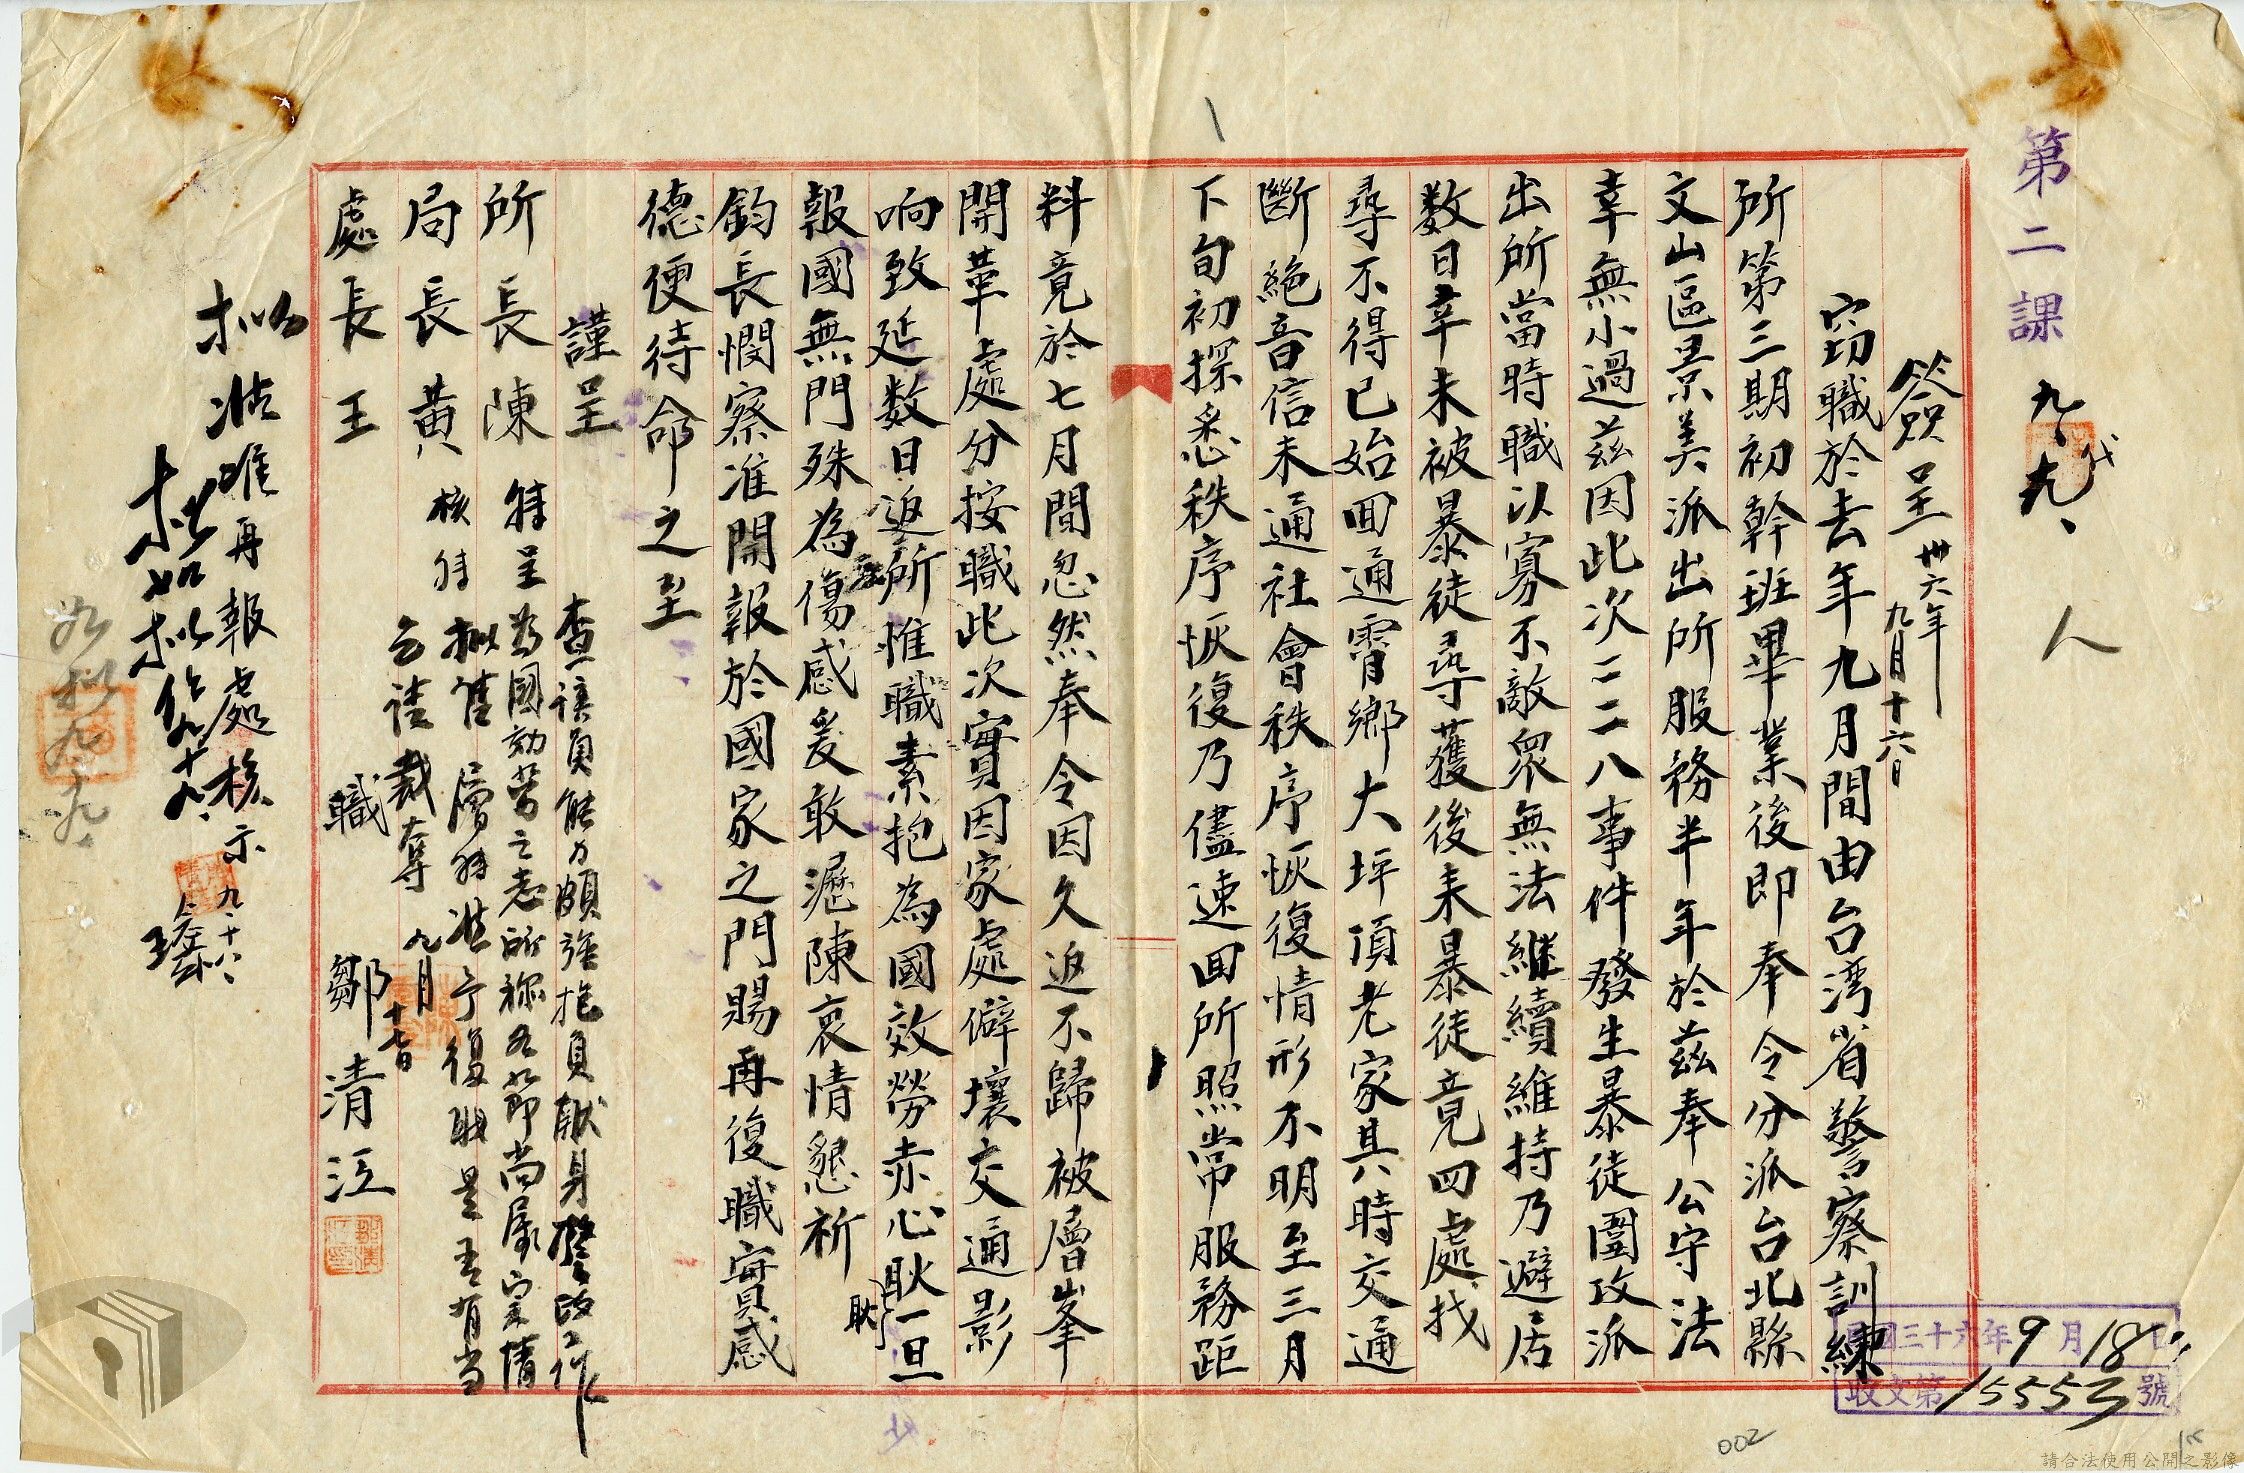 第二課
九、九、
代
人
簽呈 卅六年九月十六日
竊職於去年九月間由台湾省警察訓練
所第三期初幹班畢業後即奉令分派台北縣
文山區景美派出所服務半年於茲奉公守法
幸無小過茲因此次二二八事件發生暴徒圍攻派
出所當時職以寡不敵眾無法継續維持乃避居
数日幸未被暴徒尋獲後来暴徒竟四處找
尋不得已始回通霄鄉大坪頂老家其時交通
斷絶音信未通社會秩序恢復情形不明至三月
下旬初探悉秩序恢復乃儘速回所照常服務距
料竟於七月間忽然奉令因久返不歸被層峯
開革處分按職此次實因家處僻壤交通影
响致延数日返所惟職素抱為國效勞赤心耿耿一旦
報國無門殊為傷感爰敢瀝陳哀情懇祈
鈞長憫察准開報於國家之門賜再復職實感
德便待命之至
謹呈
所長陳
局長黃
處長王
職 鄒清江
查該員能力頗強抱負献身警政工作
特呈為國効勞之志所称各節尚屬實情
核特擬准層轉准予復職是否有当
云請裁奪 九月十七日
擬准唯再報處核示 九、十八、
拟如拟
如拟 九、十九、
民國三十六年9月18日
收文第15553號
002
請合法使用公開之影像